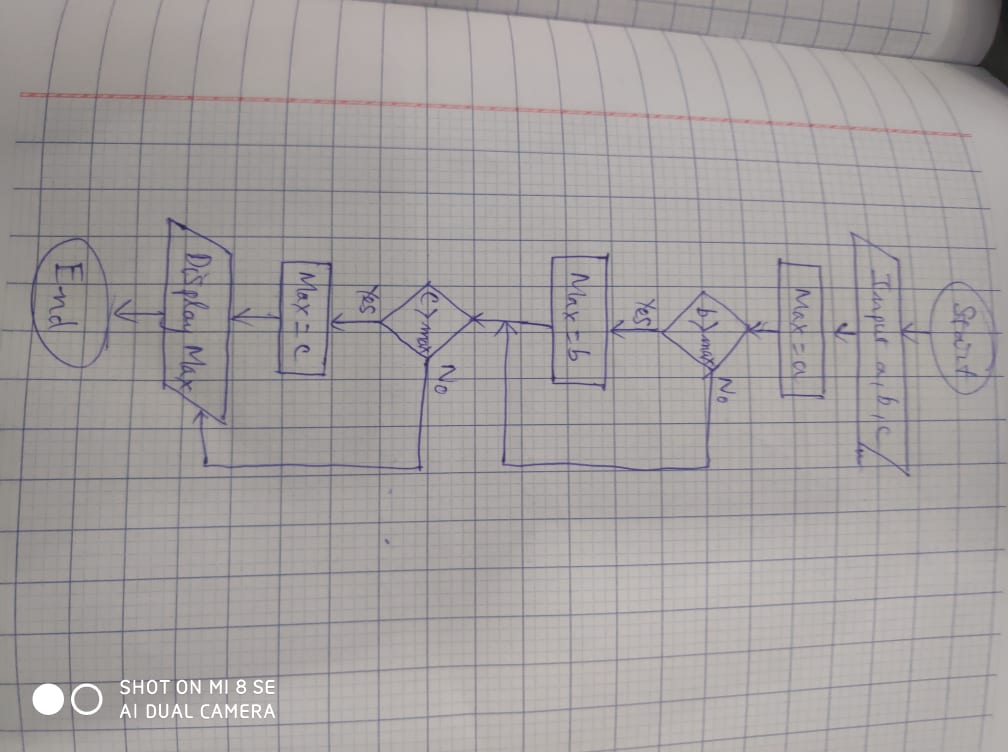 Start
Input a, b, c
Max = a
b > max
No
Yes
Max = b
c > max
No
Yes
Max = c
Display Max
End
SHOT ON MI 8 SE
AI DUAL CAMERA